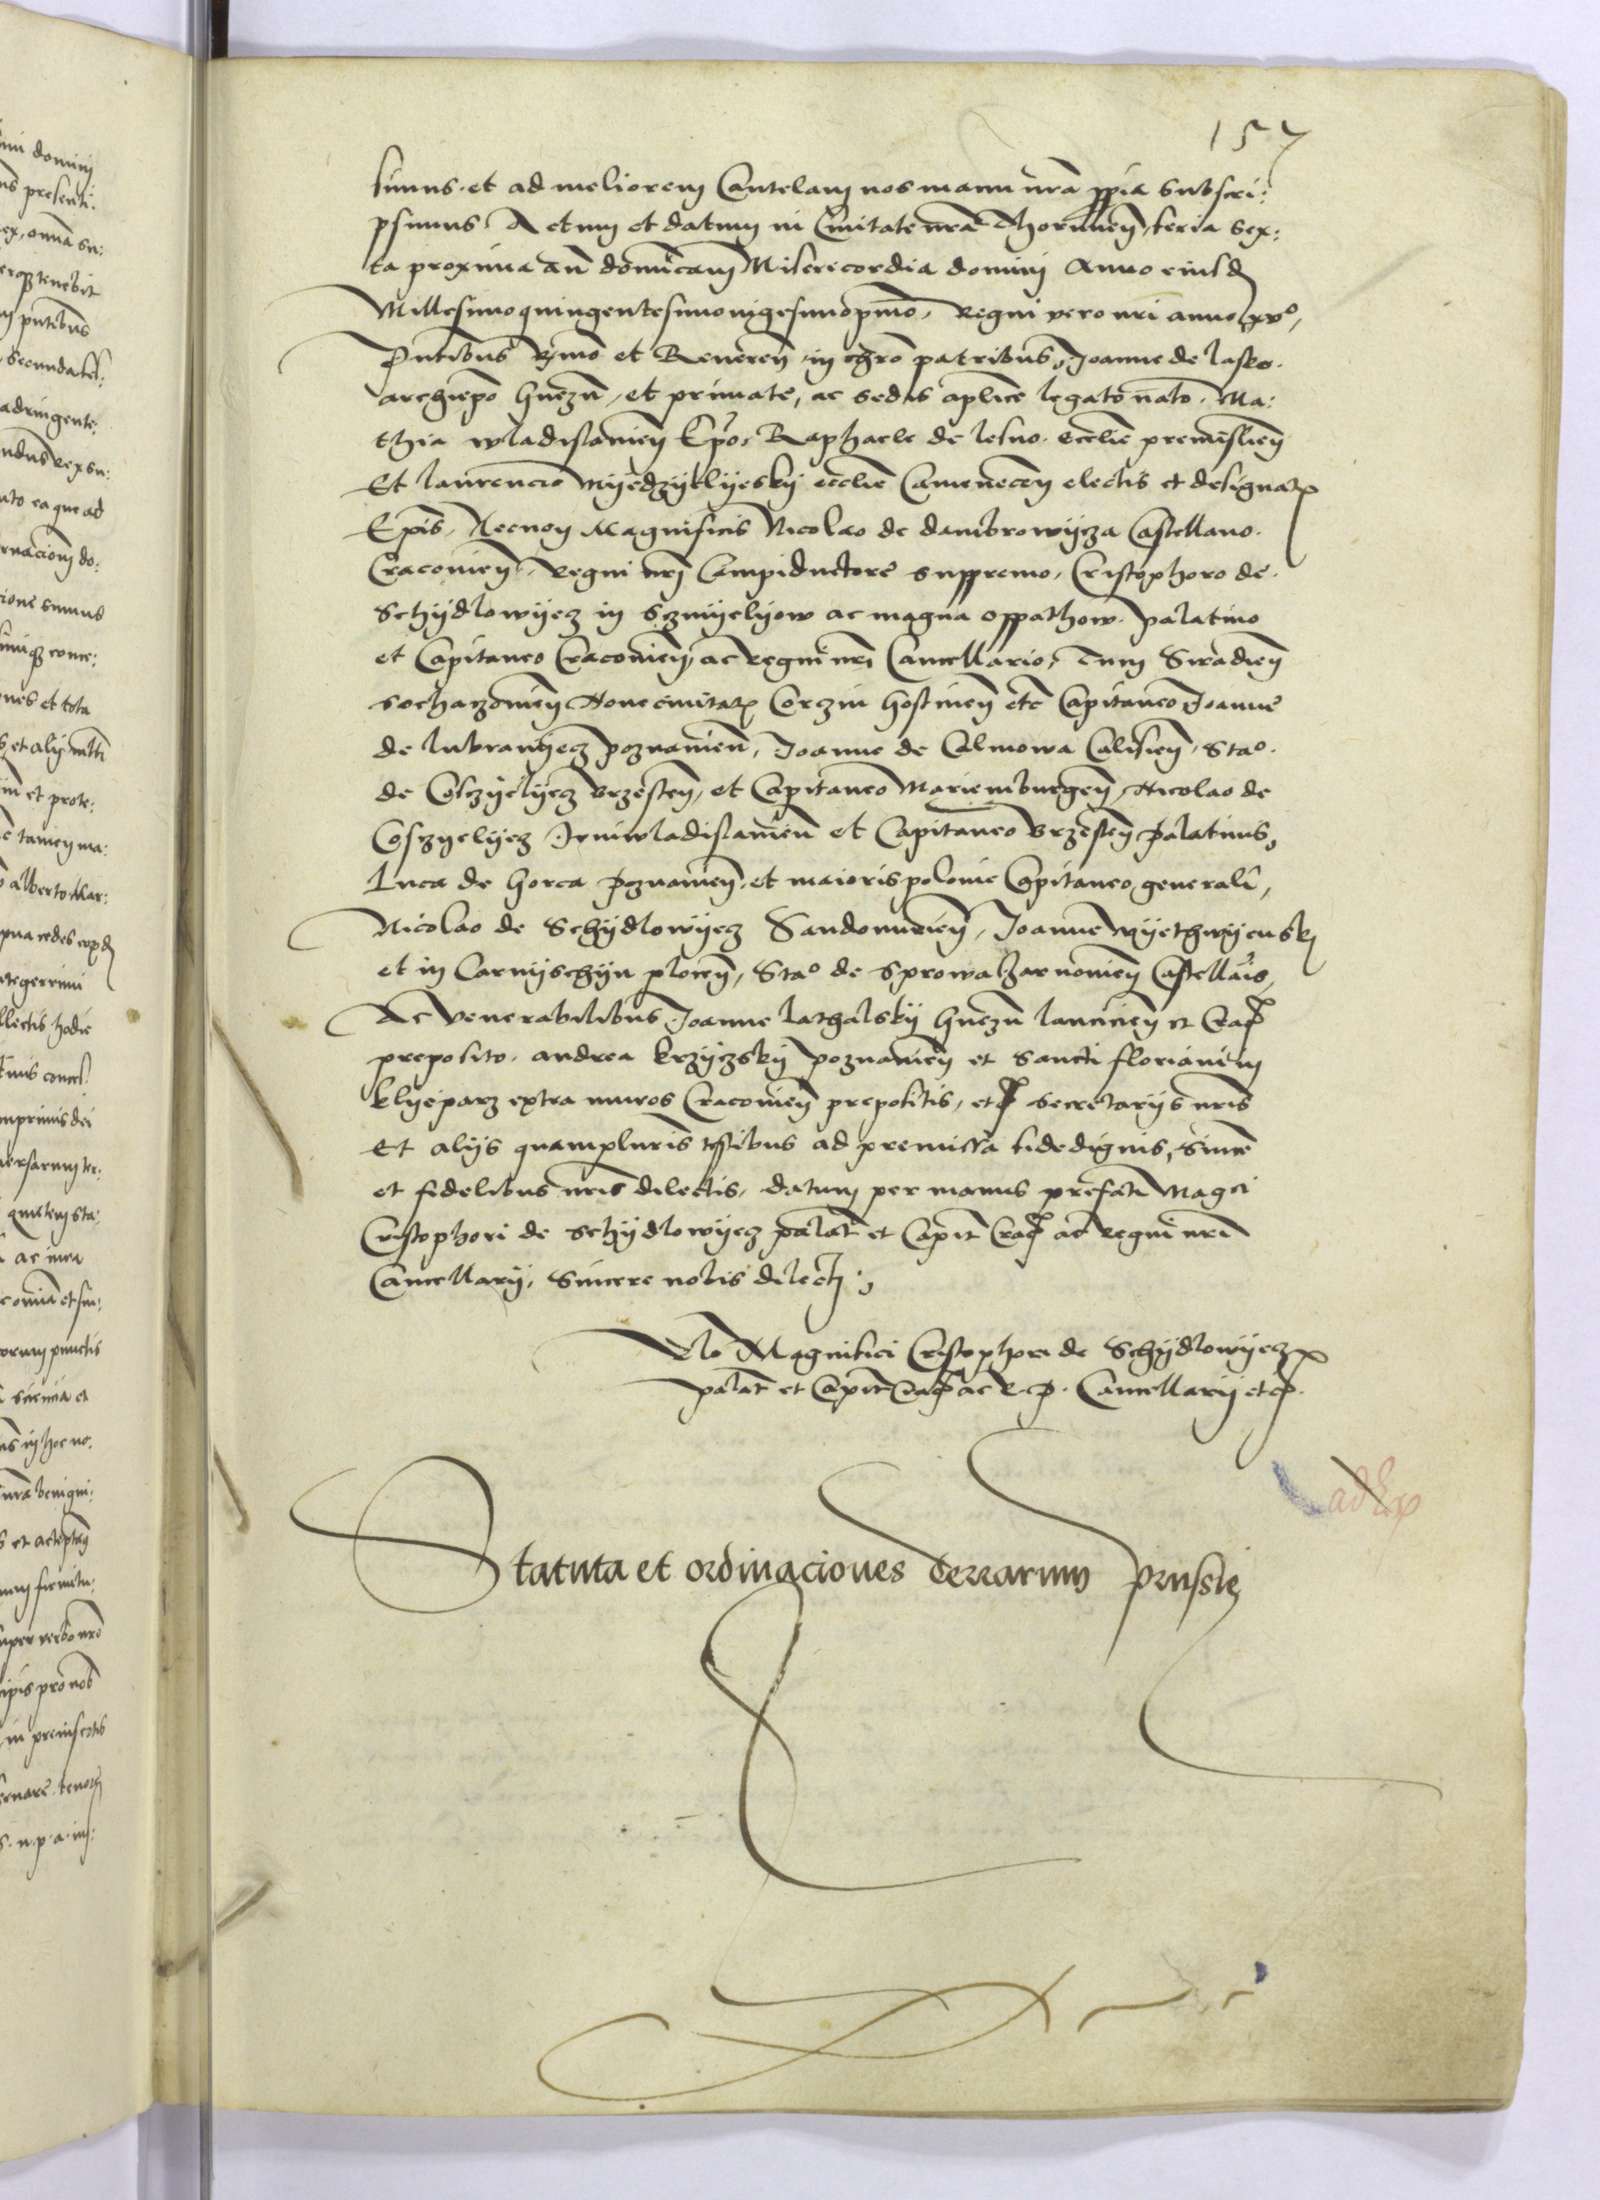 157
simus. et ad meliorem Cautelam nos manu nrã ppria subscri:
psimus, Actum et datum in Civitate nrã Thorunieñ, feria Sex:
ta proxima añ domicam Misericordia domini Anno eiusd
Millesimoquingentesimovigesimopmo, Regni vero nri anno xvº,
Pntibus Rmo et Reveren in chro patribus, Joanne de lasko.
archiepo Gnezn, et primate, ac sedis aplice legato nato. Ma:
thia wladislavien Epo, Raphaele de lesno. ecclie premislien
Et laurencio Myedzyklyesky ecclie Camenecen electis et designat
Epis, Necnon Magnificis Nicolao de dambrowycza Castellano.
Cracovien, Regni nri Campiductore suppremo, Cristophoro de.
Schydlowyecz in Szmyelyow ac magna oppathow. palatino
et Capitaneo Cracovien, ac regni nri Cancellario, Tum Siradien
sochaczovien Nove civitat Corczin Gostinen etc Capitaneo Joanne
de lubranyecz poznanien, Joanne de Calinowa Calisien, Staº.
de Cosczyelyecz Brzesten, et Capitaneo Mariemburgen, Nicolao de
Cosczyelyecz Juniwladislavien et Capitaneo Brzesten Palatinis,
Luca de Gorca Poznanien, et maioris polonie Capitaneo generali,
Nicolao de Schydlowyecz Sandomirien, Joanne wyethwyensky
et in Carnyschyn plocen, Staº de Sprowa zarnovien Castellais,
Ac venerabilibus Joanne lathalsky Gnezn lancicien et Crac
preposito. andrea krzyczsky poznanien et Sancti floriani in
klyeparz extra muros Cracovien prepositis, etc secretarys nris
Et alys quampluris testibus ad premissa fidedignis, Since
et fidelibus nris dilectis, datum per manus prefati Magci
Cristophori de Schydlowyecz palat et Capit Crac ac regni nri
Cancellary, Sincere nobis dilecti
Rlo Magnifici Cristophori de Schydlowyecz
palat et Capit Crac ac R. P. Cancellary etc.
ad
Statuta et ordinaciones Terrarum Prussie